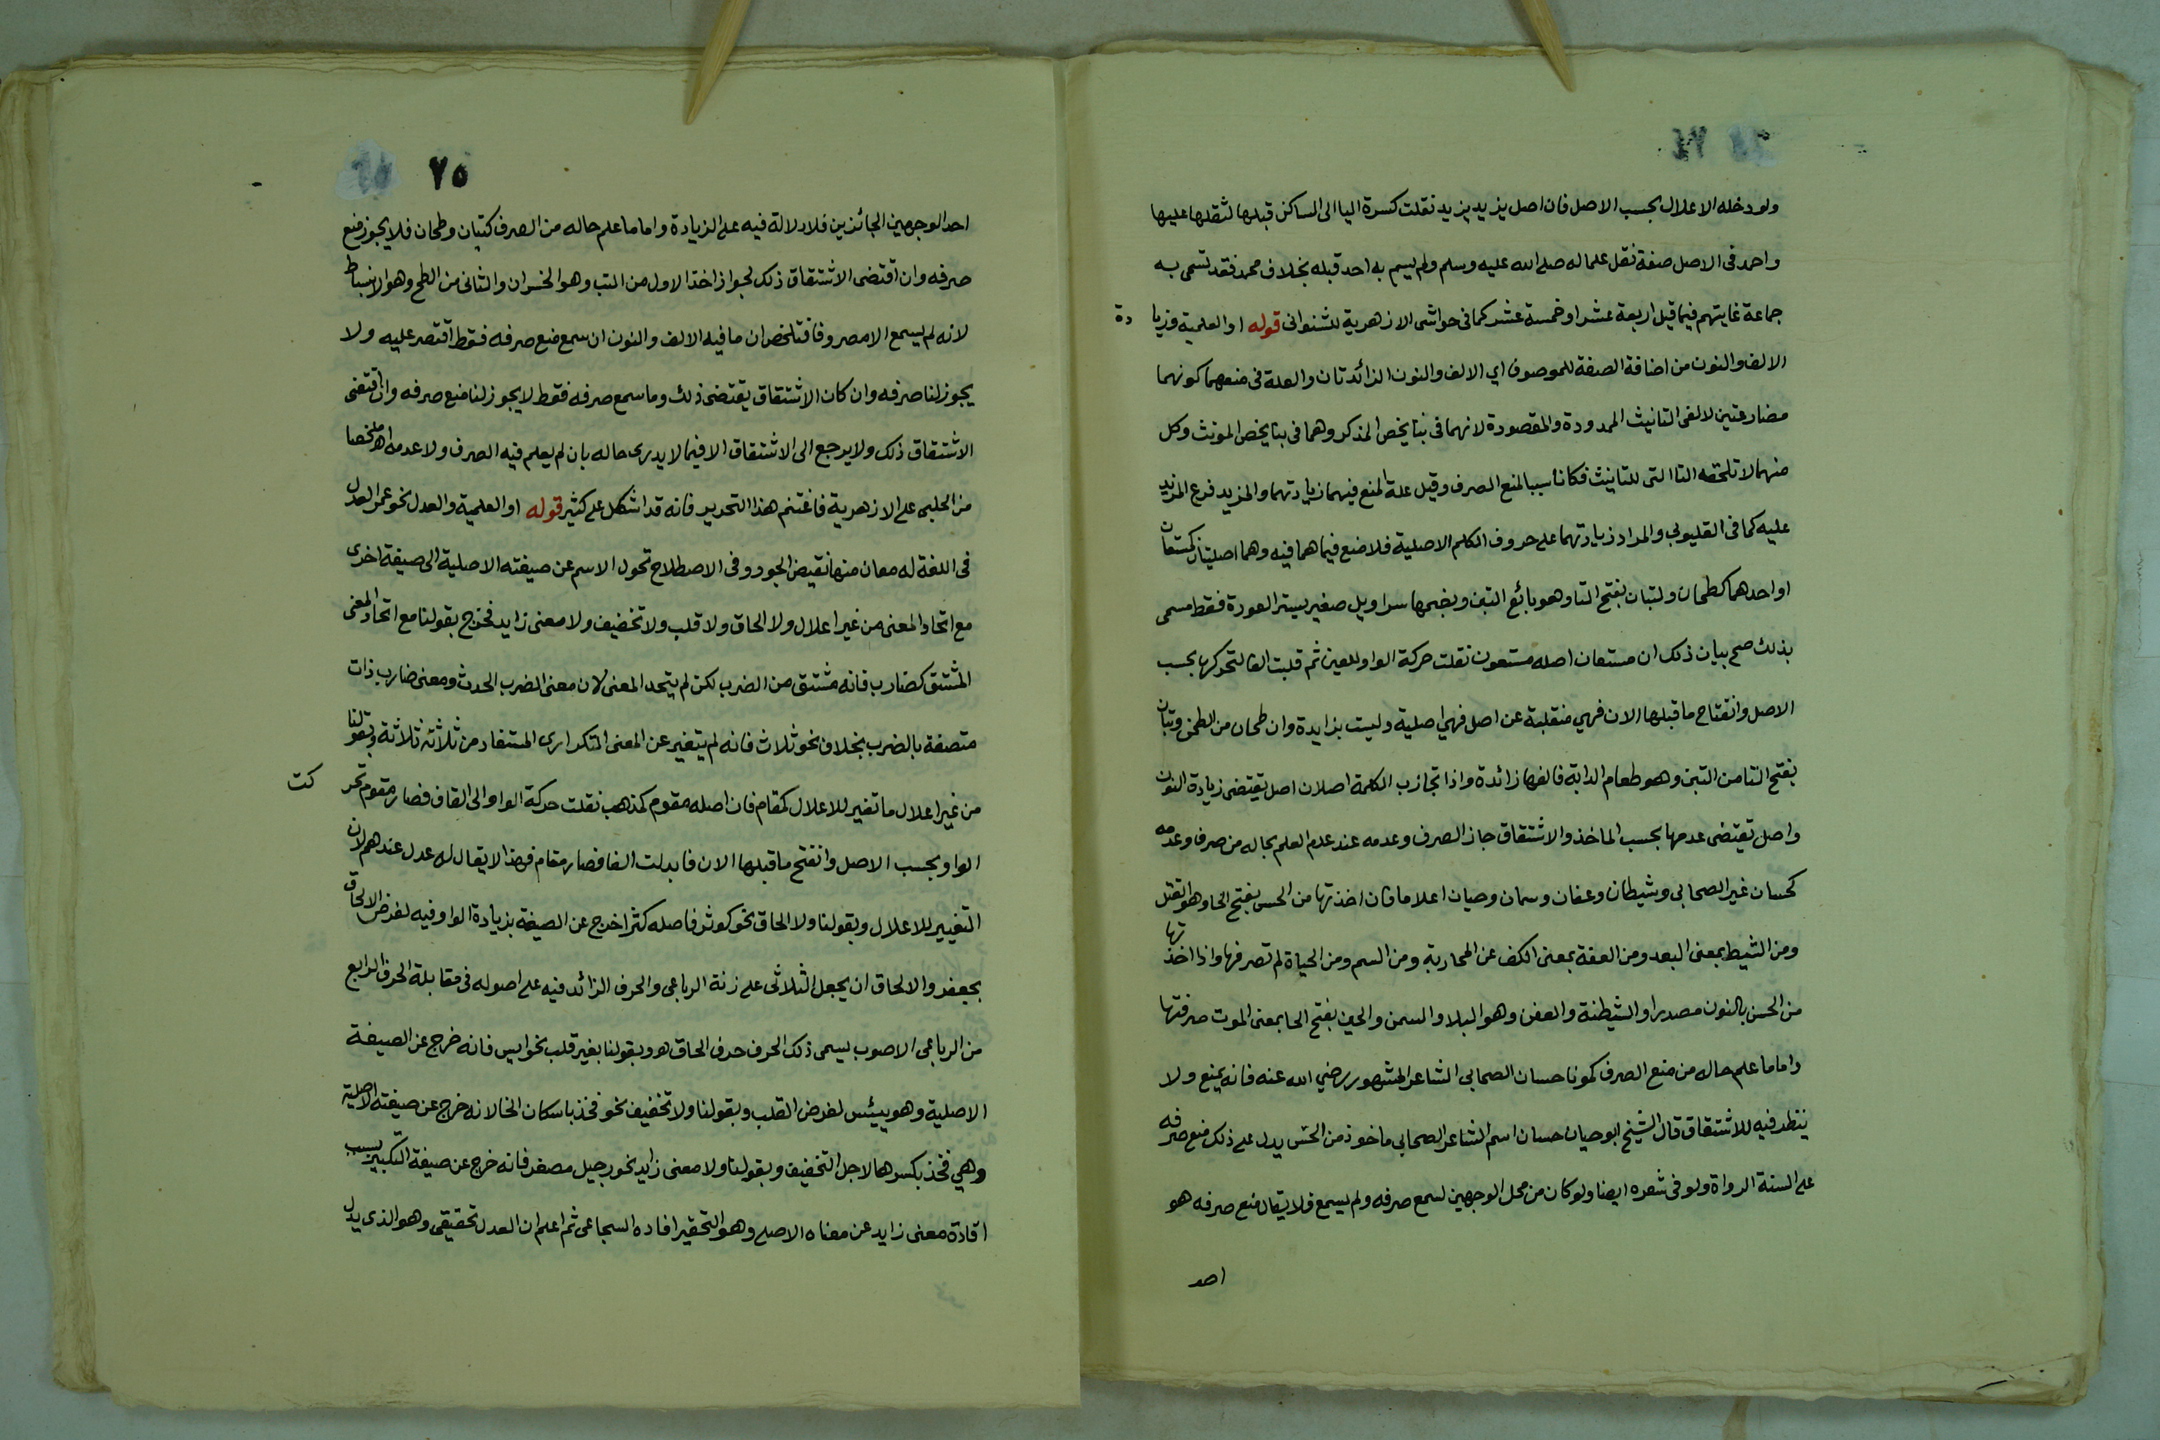 ٧٤
ولو دخله الاعلال بحسب الاصل فان اصل يزيد يزيد نقلت كسرة اليا الى الساكن قبلها لثقلها عليها
واحمد فى الاصل صفة نقل علما له صلى الله عليه وسلم ولم يسم به احد قبله بخلاف محمد فقد تسمى به
جماعة غايتهم فيما قيل اربعة عشر او خمسة عشر كما فى حواشى الازهرية للشنوانى قوله او العلمية وزيا دة
الالف والنون من اضافة الصفة للموصوف اي الالف والنون الزائدتان والعلة فى منعهما كونهما
مضارعتين لالفى التانيث الممدودة والمقصورة لانهما فى بنا يخص المذكر وهما فى بنا يخص المونث وكل
منهما لا تلحقه التا التى للتانيث فكانا سببا لمنع الصرف وقيل علة لمنع فيهما زيادتهما والمزيد فرع المزيد
عليه كما فى القليوبي والمراد زيادتهما على حروف الكلم الاصلية فلا منع فيما هما فيه وهما اصليتان كمستعان
او احدهما كطحان ولتبان بفتح التا وهو بائع التبن وبضمها سراويل صغير يستر العورة فقط مسمى
بذلك صح بيان ذلك ان مستعان اصله مستعون نقلت حركة الواو للعين ثم قلبت الفا لتحركها بحسب
الاصل وانفتاح ما قبلها الان فهي منقلبة عن اصل فهي اصلية وليست بزايدة وان طحان من الطحن وتبان
بفتح التا من التبن وهو طعام الدابة فالفها زائدة واذا تجاذب الكلمة اصلان اصل يقتضى زيادة النون
واصل يقتضى عدمها بحسب الماخذ والاشتقاق جاز الصرف وعدمه عند عدم العلم بحاله من صرف وعدمه
كحسان غير الصحابي وشيطان وعفان وسمان وحيان اعلاما فان اخذتها من الحس بفتح الحا وهو القتل
ومن الشيط بمعنى البعد ومن العفة بمعنى الكف عن المحاربة ومن السم ومن الحياة لم تصرفها واذا اخذتها
من الحسن بالنون مصدرا والشيطنة والعفن وهو البلا والسمن والحين بفتح الحا بمعنى الموت صرفتها
واما ما علم حاله من منع الصرف كمونا حسان الصحابى الشاعر المشهور رضي الله عنه فانه يمنع ولا
ينظر فيه للاشتقاق قال الشيخ ابو حيان حسان اسم الشاعر الصحابي ماخوذ من الحس يدل على ذلك منع صرفه
على السنة الرواة ولو فى شعره ايضا ولو كان من محل الوجهين لسمع صرفه ولم يسمع فلا يقال منع صرفه هو
احد
٧٥
احد الوجهين الجائزين فلا دلالة فيه على الزيادة واما ما علم حاله من الصرف كتبان وطحان فلا يجوز منع
صرفه وان اقتضى الاشتقاق ذلك لجواز اخذ الاول من التب وهو الخسران والثانى من الطح وهو الانبساط
لانه لم يسمع الا مصروفا فتلخص ان ما فيه الالف والنون ان سمع منع صرفه فقط اقتصر عليه ولا
يجوز لنا صرفه وان كان الاشتقاق يقتضى ذلك وما سمع صرفه فقط لا يجوز لنا منع صرفه وان اقتضى
الاشتقاق ذلك ولا يرجع الى الاشتقاق الا فيما لا يدرى حاله بان لم يعلم فيه الصرف ولا عدمه اهـ ملخصا
من الحلبى على الازهرية فاغتنم هذا التحرير فانه قد اشكل على كثير قوله او العلمية والعدل نحو عمر العدل
فى اللغة له معان منها نقيض الجور وفى الاصطلاح تحول الاسم عن صيغته الاصلية الى صيغة اخرى
مع اتحاد المعنى من غير اعلال ولا الحاق ولا قلب ولا تخفيف ولا معنى زايد فخرج بقولنا مع اتحاد المعنى
المشتق كضارب فانه مشتق من الضرب لكن لم يتحد المعنى لان معنى الضرب الحدث ومعنى ضارب ذات
متصفة بالضرب بخلاف نحو ثلاث فانه لم يتغير عن المعنى التكرارى المستفاد من ثلاثة ثلاثة وبقولنا
من غير اعلال ما تغير للاعلال كمقام فان اصله مقوم كمذهب نقلت حركة الواو الى القاف فصار مقوم تحر كت
الواو بحسب الاصل وانفتح ما قبلها الان فابدلت الفا فصار مقام فهذا لا يقال له عدل عندهم لان
التغيير للاعلال وبقولنا ولا الحاق نحو كوثر فاصله كثر اخرج عن الصيغة بزيادة الواو فيه لغرض الالحاق
بجعفر والالحاق ان يجعل الثلاثى على زنة الرباعى والحرف الزائد فيه على اصوله فى مقابلة الحرف الرابع
من الرباعى الاصوب يسمى ذلك الحرف حرف الحاق هو وبقولنا بغير قلب نحو ايس فانه خرج عن الصيغة
الاصلية وهو يئس لغرض القلب وبقولنا ولا تخفيف نحو فخذ باسكان الخا لانه خرج عن صيغته الاصلية
وهي فخذ بكسرها لاجل التخفيف وبقولنا ولا معنى زايد نحو رجيل مصغر فانه خرج عن صيغة التكبير بسبب
افادة معنى زايد عن معناه الاصلي وهو التحقير افاده السجاعى ثم اعلم ان العدل تحقيقى وهو الذى يدل